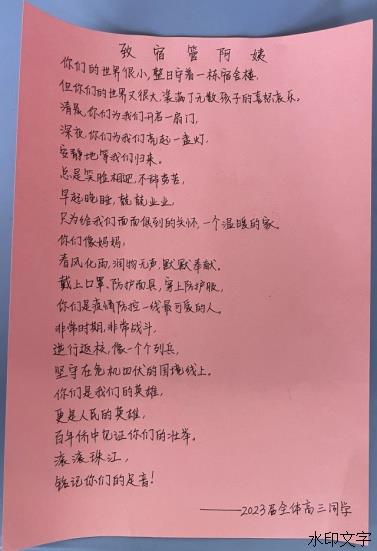 致宿管阿姨
你们的世界很小,整日守着一栋宿舍楼.
但你们的世界又很大,装满了无数孩子的喜怒哀乐.
清晨,你们为我们开启一扇门,
深夜,你们为我们亮起一盏灯,
安静地等我们归来.
总是笑脸相迎,不辞劳苦,
早起晚睡,兢兢业业,
只为给我们面面俱到的关怀,一个温暖的家.
你们像妈妈,
春风化雨,润物无声,默默奉献.
戴上口罩、防护面具,穿上防护服,
你们是疫情防控一线最可爱的人.
非常时期,非常战斗,
逆行返校,像一个个列兵,
坚守在危机四伏的围墙线上.
你们是我们的英雄,
更是人民的英雄,
百年侨中见证你们的壮举.
滚滚珠江,
铭记你们的足音!
——2023届全体高三同学
水印文字